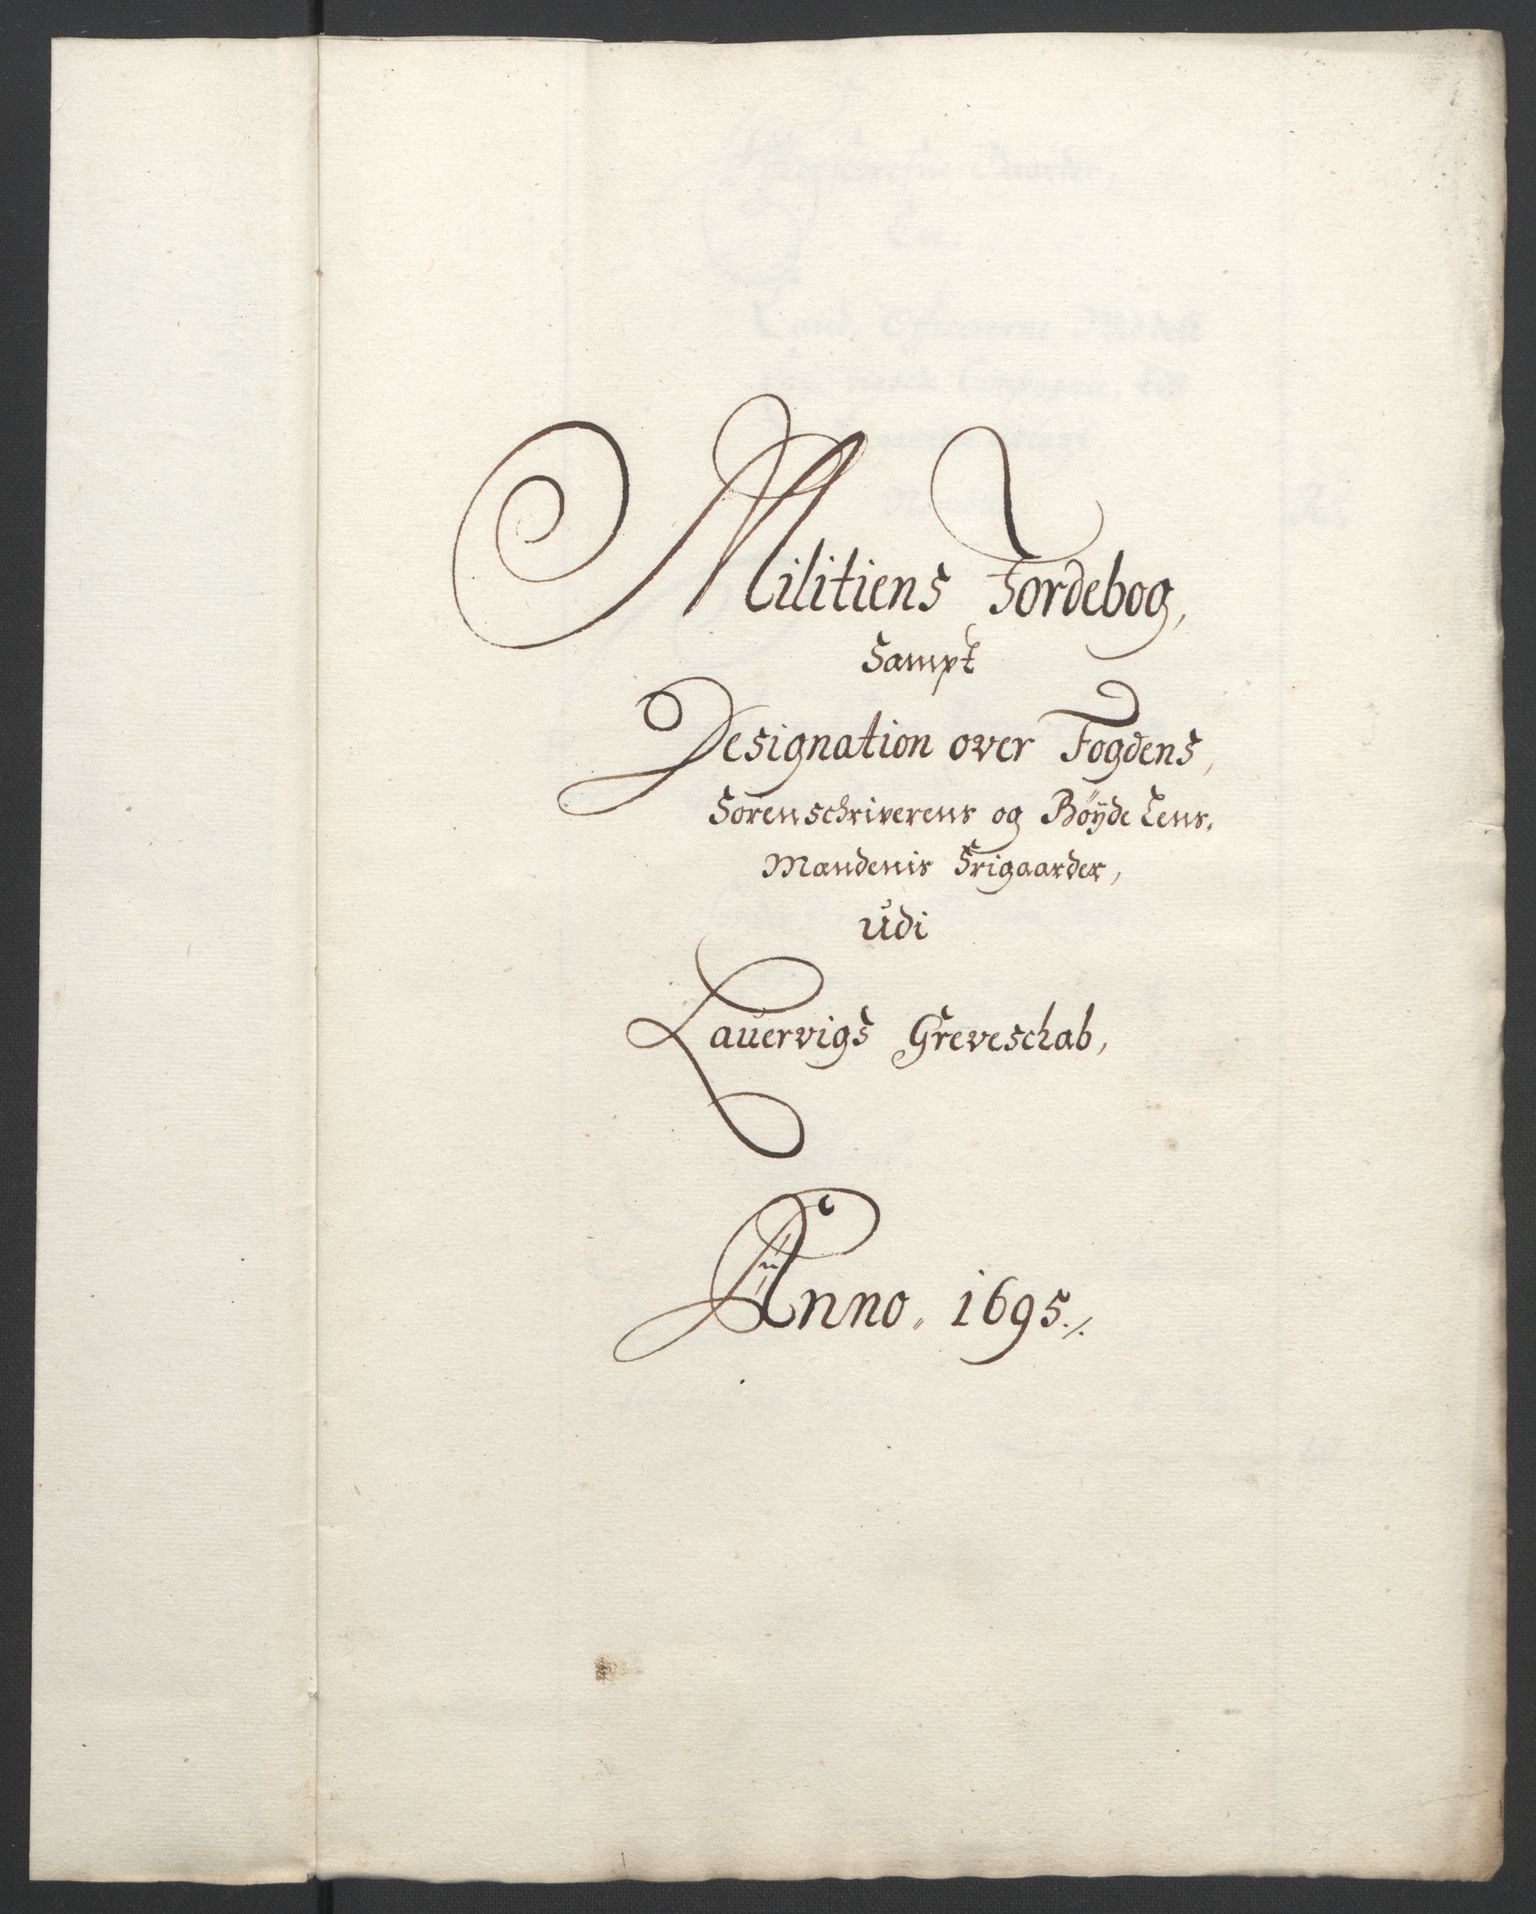 Militiens Jordebog,
Sampt
Designation over Fogdens,
Sorenschriverens og Böyde Lens,
Mændenis Frigaarder,
Udi
Lauervigs Greveschab,
Anno. 1695./.